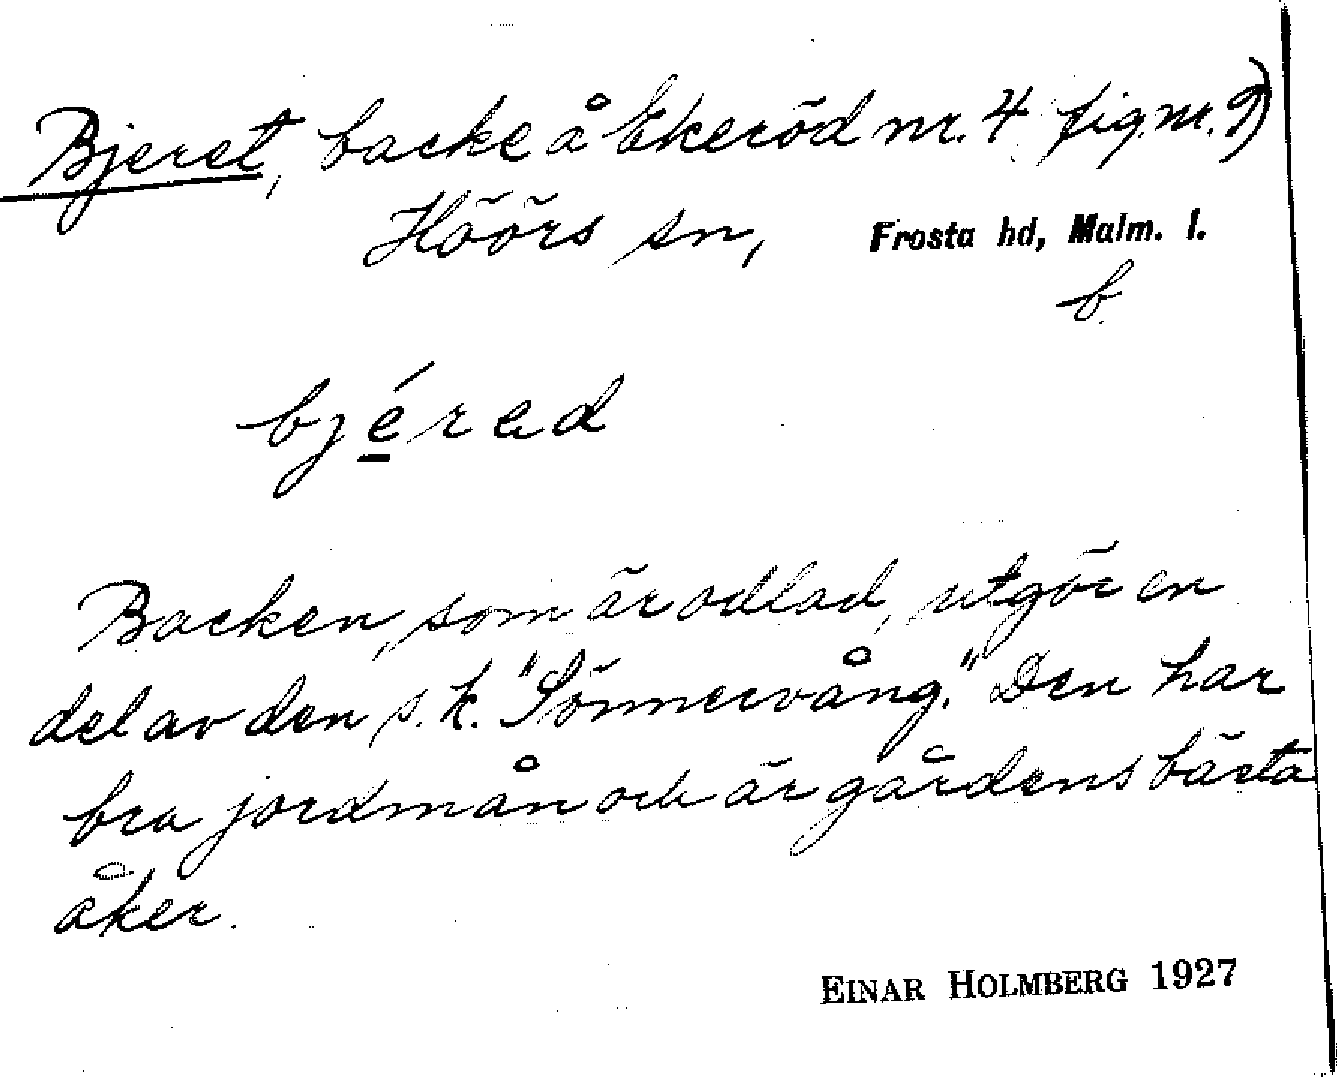 Bjeret, backe å Ekeröd nr. 4 fig. nr. 9)
Höörs sn, Frosta hd, Malm. l.
b.
bjéred
Backen, som är odlad, utgör en
del av den s.k. "Sönnervång." Den har
bra jordmån och är gårdens bästa
åker.
EINAR HOLMBERG 1927